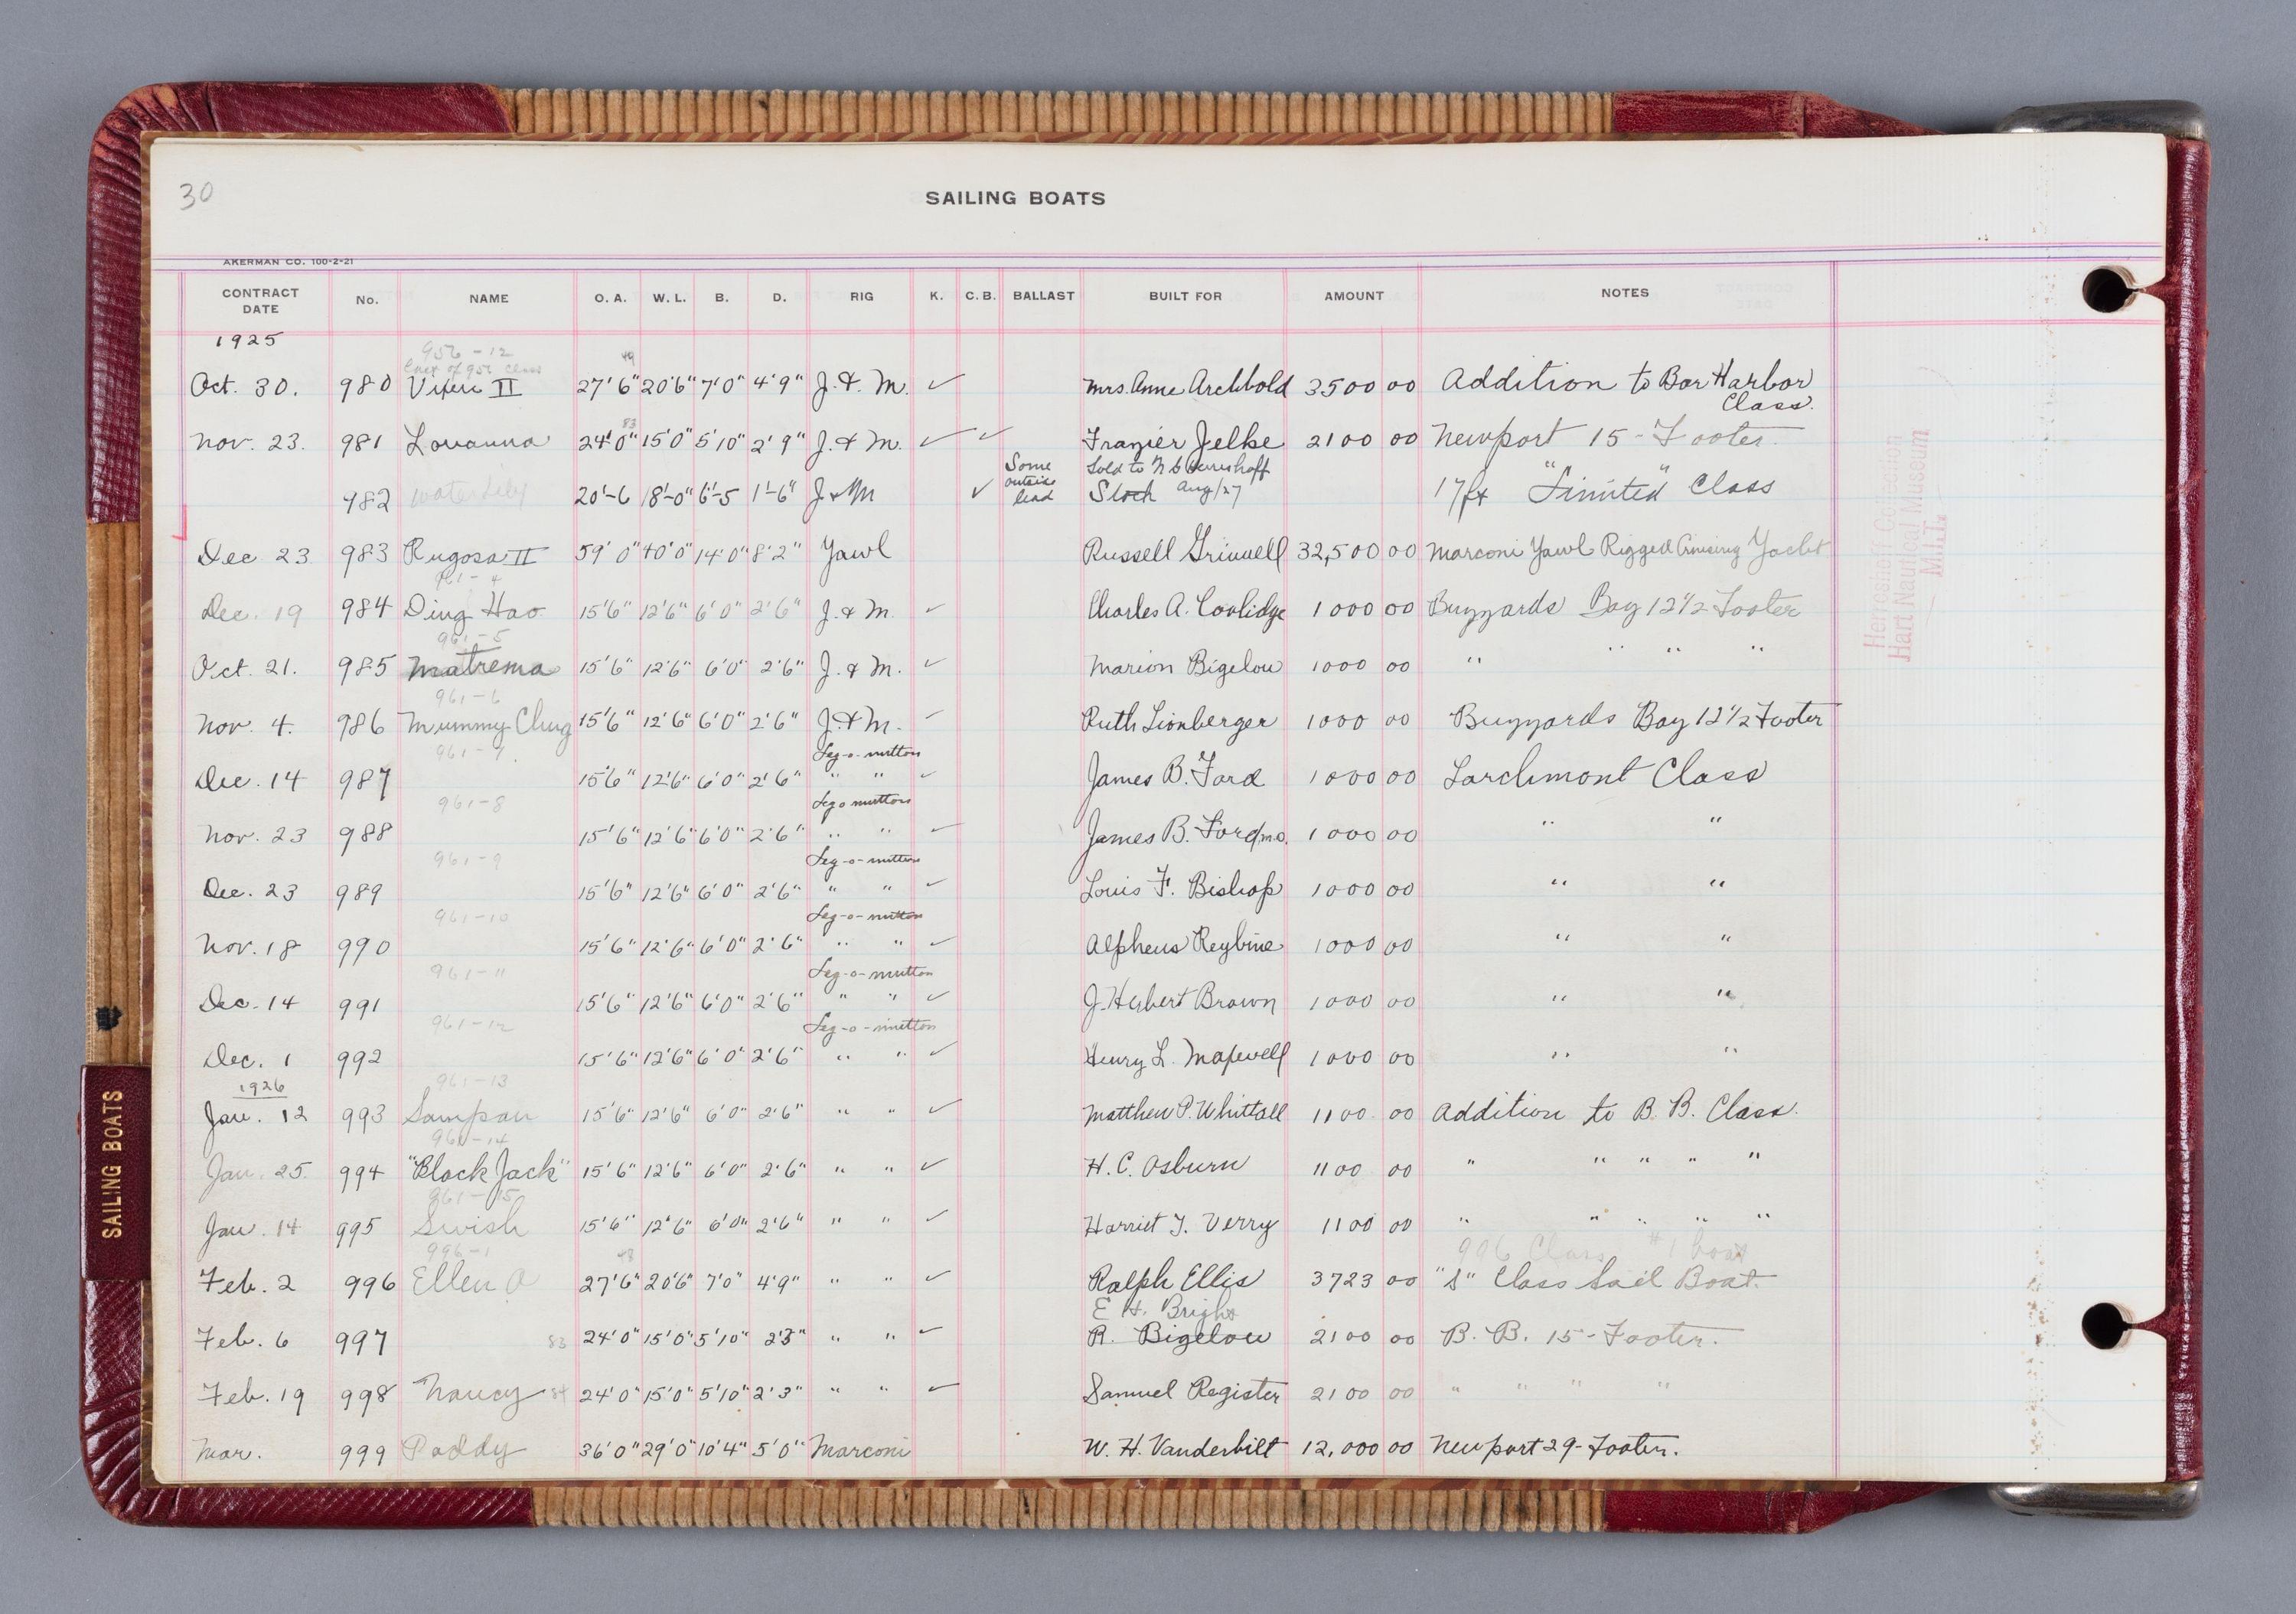 30
SAILING BOATS
AKERMAN CO. 100-2-21
CONTRACT DATE No. NAME O. A. W. L. B. D. RIG K. C. B. BALLAST BUILT FOR AMOUNT NOTES
1925
956-12
49
Oct. 30. 980 II 27'6" 20'6" 7'0" 4'9" J. & M. ✓ Mrs. Anne Archbold 3500 00 Addition to Bar Harbor
Class.
83
Nov. 23. 981 Louanna 24'0" 15'0" 5'10" 2'9" J. & M. ✓ ✓ Frazier Jelke 2100 00 Newport 15-Footer.
Some outside lead
Sold to Aug/27
982 Water Lily 20'-6 18'-0" 6'-5 1'-6" J & M ✓ Stock 17ft "Limited" Class
Dec 23 983 Rugosa II 59'0" 40'0" 14'0" 8'2" Yawl Russell Grinnell 32,500 00 Marconi Yawl Rigged Cruising Yacht
961-4
Dec. 19 984 Ding Hao 15'6" 12'6" 6'0" 2'6" J. & M. ✓ Charles A. Coolidge 1000 00 Buzzards Bay 12 1/2 Footer
961-5
Oct. 21. 985 Matrema 15'6" 12'6" 6'0" 2'6" J. & M. ✓ Marion Bigelow 1000 00 " " " "
961-6
Nov. 4. 986 Mummy Chug 15'6" 12'6" 6'0" 2'6" J. & M. ✓ Ruth Lionberger 1000 00 Buzzards Bay 12 1/2 Footer
961-7 Leg-o-mutton
Dec. 14 987 15'6" 12'6" 6'0" 2'6" " " ✓ James B. Ford 1000 00 Larchmont Class
961-8 Leg o mutton
Nov. 23 988 15'6" 12'6" 6'0" 2'6" " " ✓ James B. Ford 1000 00 " "
961-9 Leg-o-mutton
Dec. 23 989 15'6" 12'6" 6'0" 2'6" " " ✓ Louis F. Bishop 1000 00 " "
961-10 Leg-o-mutton
Nov. 18 990 15'6" 12'6" 6'0" 2'6" " " ✓ Alpheus 1000 00 " "
961-11 Leg-o-mutton
Dec. 14 991 15'6" 12'6" 6'0" 2'6" " " ✓ J. Herbert Brown 1000 00 " "
961-12 Leg-o-mutton
Dec. 1 992 15'6" 12'6" 6'0" 2'6" " " ✓ Henry L. Maxwell 1000 00 " "
1926
961-13
Jan. 12 993 Sampan 15'6" 12'6" 6'0" 2'6" " " ✓ Matthew P. Whittall 1100 00 Addition to B. B. Class.
961-14
Jan. 25. 994 "Black Jack" 15'6" 12'6" 6'0" 2'6" " " ✓ H. C. Osburn 1100 00 " " " " "
961-15
Jan. 14 995 Swish 15'6" 12'6" 6'0" 2'6" " " ✓ Harriet T. Verry 1100 00 " " " " "
996-1 48 Class #1 boat
Feb. 2 996 Ellen A 27'6" 20'6" 7'0" 4'9" " " ✓ Ralph Ellis 3723 00 "S" Class Sail Boat.
E H. Bright
Feb. 6 997 83 24'0" 15'0" 5'10" 2'3" " " ✓ R. Bigelow 2100 00 B. B. 15-Footer.
Feb. 19 998 Nancy 84 24'0" 15'0" 5'10" 2'3" " " ✓ Samuel Register 2100 00 " " " "
Mar. 999 Paddy 36'0" 29'0" 10'4" 5'0" Marconi W. H. Vanderbilt 12,000 00 Newport 29-Footer.
Herreshoff Collection
Hart Nautical Museum
M.I.T.
SAILING BOATS